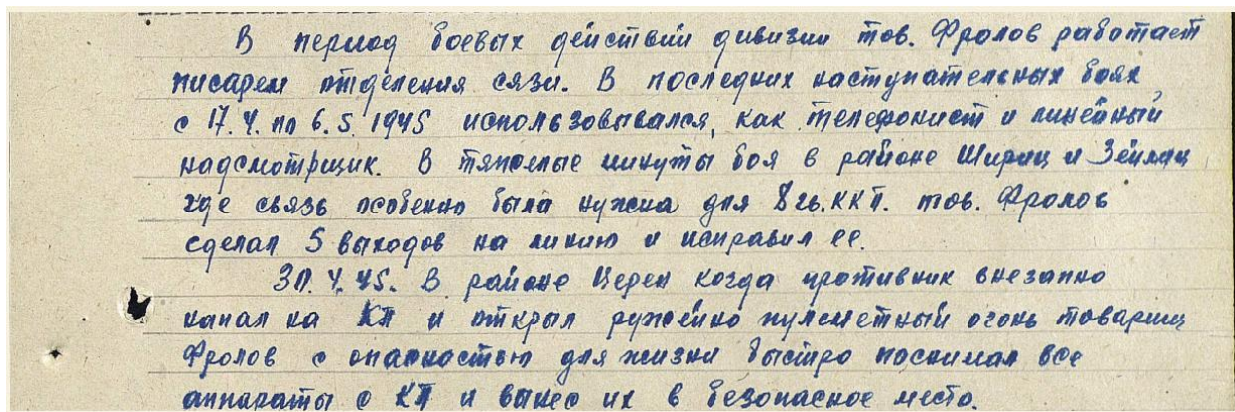 В период боевых действий дивизии тов. Фролов работает
писарем отделения связи. В последних наступательных боях
с 17.4. по 6.5.1945 использовывался, как телефонист и линейный
надсмотрщик. В тяжелые минуты боя в районе Шириц и Зейлиц
где связь особенно была нужна для 8 гв. ККП. тов. Фролов
сделал 5 выходов на линию и исправил ее.
30.4.45. В районе Цеден когда противник внезапно
напал на КП и открыл ружейно пулеметный огонь товарищ
Фролов с опасностью для жизни быстро поснимал все
аппараты с КП и вынес их в безопасное место.